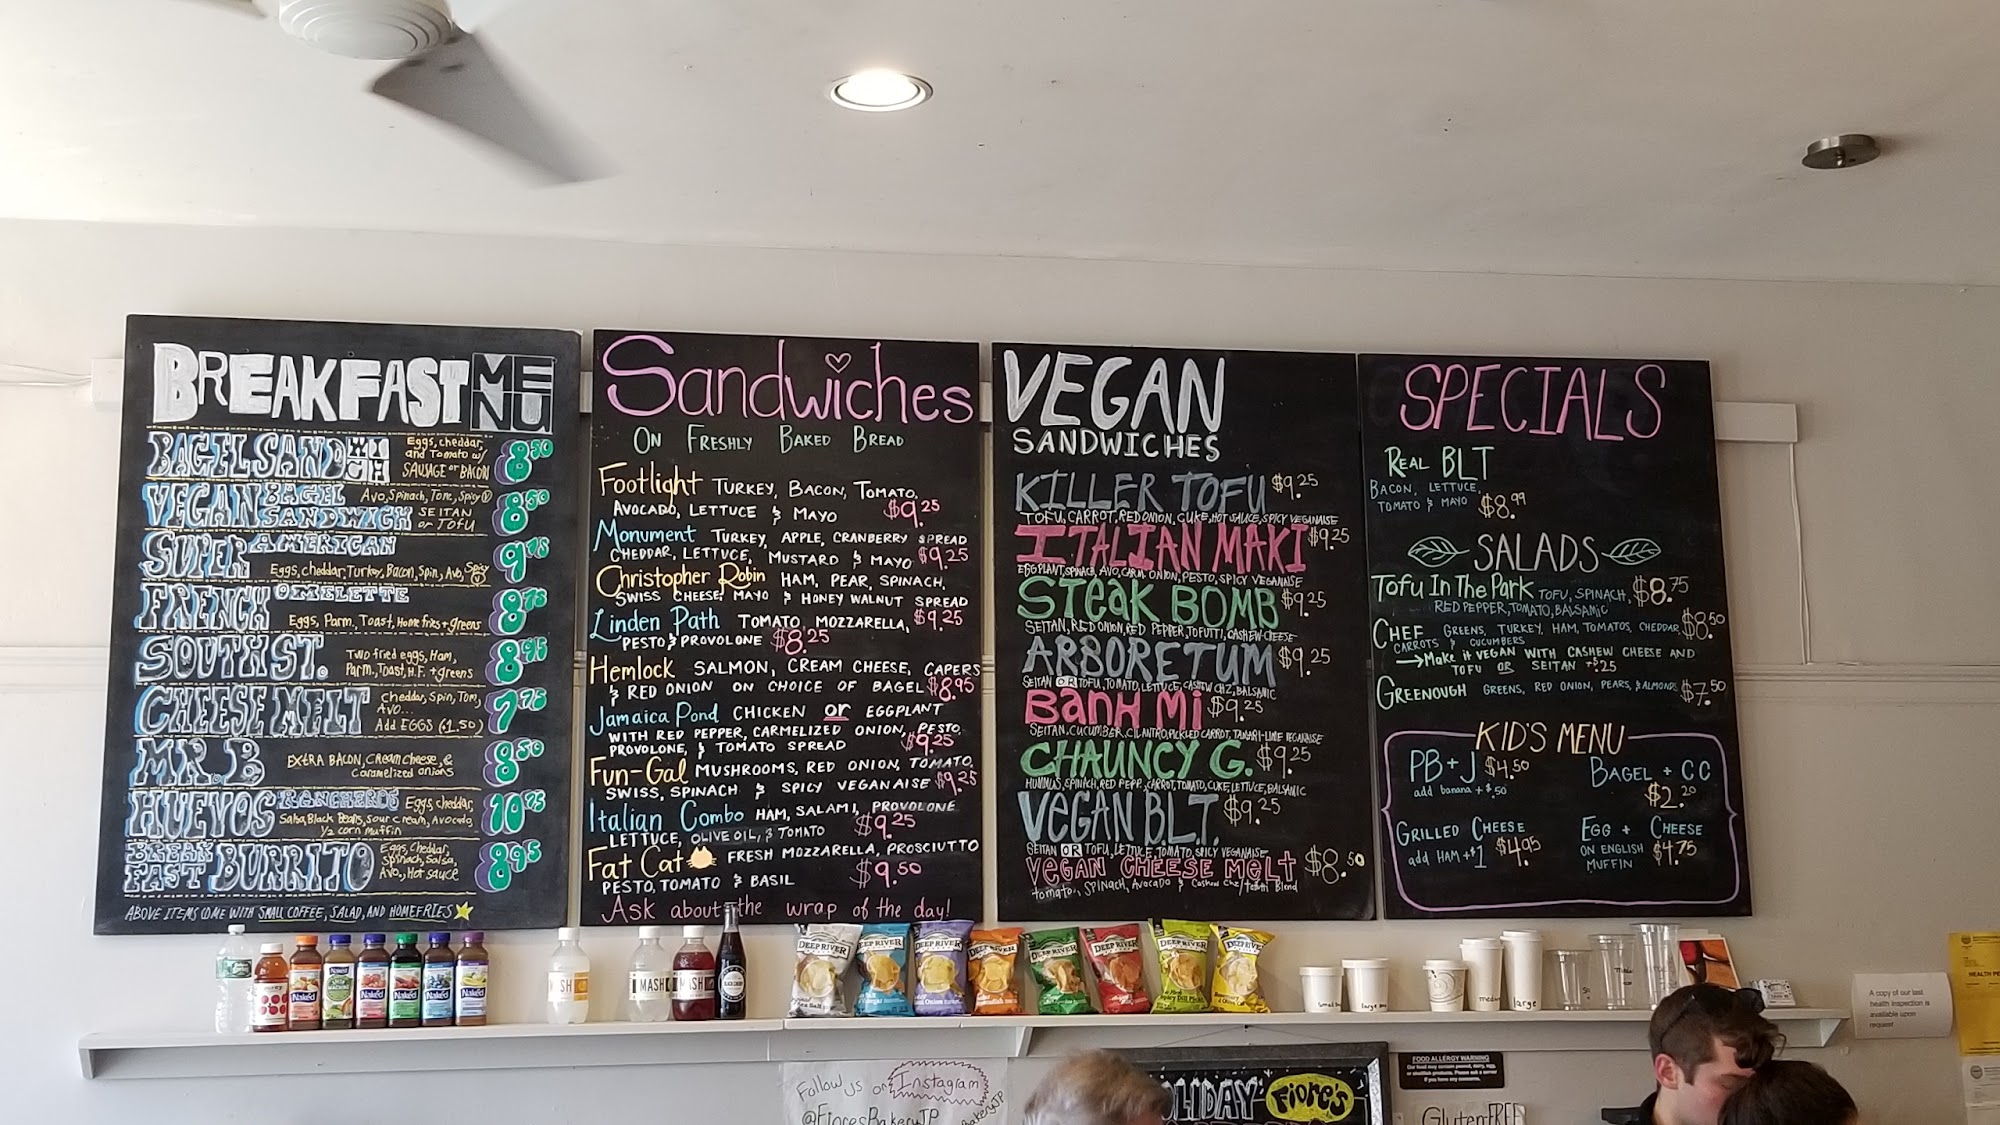 BREAKFAST MENU
BAGEL SANDWICH Eggs, cheddar, and Tomato w/ SAUSAGE or BACON 8.50
VEGAN BAGEL SANDWICH Avo, Spinach, Tom, Spicy V SEITAN or TOFU 8.50
SUPER AMERICAN Eggs, cheddar, Turkey, Bacon, Spin, Avo, Spicy V 9.75
FRENCH OMELETTE Eggs, Parm, Toast, Home fries + greens 8.75
SOUTH ST. Two fried eggs, Ham, Parm, Toast, H.F. + greens 8.95
CHEESE MELT Cheddar, Spin, Tom, Avo... Add EGGS (1.50) 7.75
MR. B EXTRA BACON, CREAM CHEESE, & Caramelized onions 8.50
HUEVOS RANCHEROS Eggs, cheddar, Salsa, Black Beans, sour cream, Avocado, 1/2 corn muffin 10.75
BREAKFAST BURRITO Eggs, cheddar, spinach, Salsa, Avo., Hot sauce 8.95
ABOVE ITEMS COME WITH SMALL COFFEE, SALAD, AND HOMEFRIES
Sandwiches
ON FRESHLY BAKED BREAD
Footlight TURKEY, BACON, TOMATO,
AVOCADO, LETTUCE & MAYO $9.25
Monument TURKEY, APPLE, CRANBERRY SPREAD
CHEDDAR, LETTUCE, MUSTARD & MAYO $9.25
Christopher Robin HAM, PEAR, SPINACH,
SWISS CHEESE, MAYO & HONEY WALNUT SPREAD
Linden Path TOMATO, MOZZARELLA, $9.25
PESTO & PROVOLONE $8.25
Hemlock SALMON, CREAM CHEESE, CAPERS
& RED ONION ON CHOICE OF BAGEL $8.95
Jamaica Pond CHICKEN or EGGPLANT
WITH RED PEPPER, CARMELIZED ONION, PESTO,
PROVOLONE, & TOMATO SPREAD $9.25
Fun-Gal MUSHROOMS, RED ONION, TOMATO,
SWISS, SPINACH & SPICY VEGANAISE $9.25
Italian Combo HAM, SALAMI, PROVOLONE
LETTUCE, OLIVE OIL, & TOMATO $9.25
Fat Cat FRESH MOZZARELLA, PROSCIUTTO
PESTO, TOMATO & BASIL $9.50
Ask about the wrap of the day!
VEGAN
SANDWICHES
KILLER TOFU $9.25
TOFU, CARROT, RED ONION, CUKE, HOT SAUCE, SPICY VEGANAISE
ITALIAN MAKI $9.25
EGGPLANT, SPINACH, AVO, CARM. ONION, PESTO, SPICY VEGANAISE
STEAK BOMB $9.25
SEITAN, RED ONION, RED PEPPER, TOFUTTI, CASHEW CHEESE
ARBORETUM $9.25
SEITAN OR TOFU, TOMATO, LETTUCE, CASHEW CHZ, BALSAMIC
BANH MI $9.25
SEITAN, CUCUMBER, CILANTRO, PICKLED CARROT, TAMARI-LIME VEGANAISE
CHAUNCY G. $9.25
HUMMUS, SPINACH, RED PEPP, CARROT, TOMATO, CUKE, LETTUCE, BALSAMIC
VEGAN B.L.T. $9.25
SEITAN OR TOFU, LETTUCE, TOMATO, SPICY VEGANAISE
VEGAN CHEESE MELT $8.50
Tomato, SPINACH, AVOCADO & Cashew Chz/tofutti Blend
SPECIALS
REAL BLT
BACON, LETTUCE,
TOMATO & MAYO $8.99
SALADS
TOFU IN THE PARK TOFU, SPINACH, $8.75
RED PEPPER, TOMATO, BALSAMIC
CHEF GREENS, TURKEY, HAM, TOMATOS, CHEDDAR, $8.50
CARROTS & CUCUMBERS
Make it VEGAN WITH CASHEW CHEESE AND
TOFU OR SEITAN +$.25
GREENOUGH GREENS, RED ONION, PEARS, & ALMONDS $7.50
KID'S MENU
PB + J $4.50
add banana + $.50
BAGEL + CC
$2.20
GRILLED CHEESE
add HAM +$1 $4.95
EGG + CHEESE
ON ENGLISH MUFFIN $4.75
DEEP RIVER
DEEP RIVER
DEEP RIVER
DEEP RIVER
DEEP RIVER
DEEP RIVER
DEEP RIVER
Naked
Naked
Naked
Naked
Naked
MASH
MASH
large
Follow us on Instagram
@FioresBakeryJP
HOLIDAY
Fiore's
FOOD ALLERGY WARNING
Gluten-FREE
A copy of our last
health inspection is
available upon
request